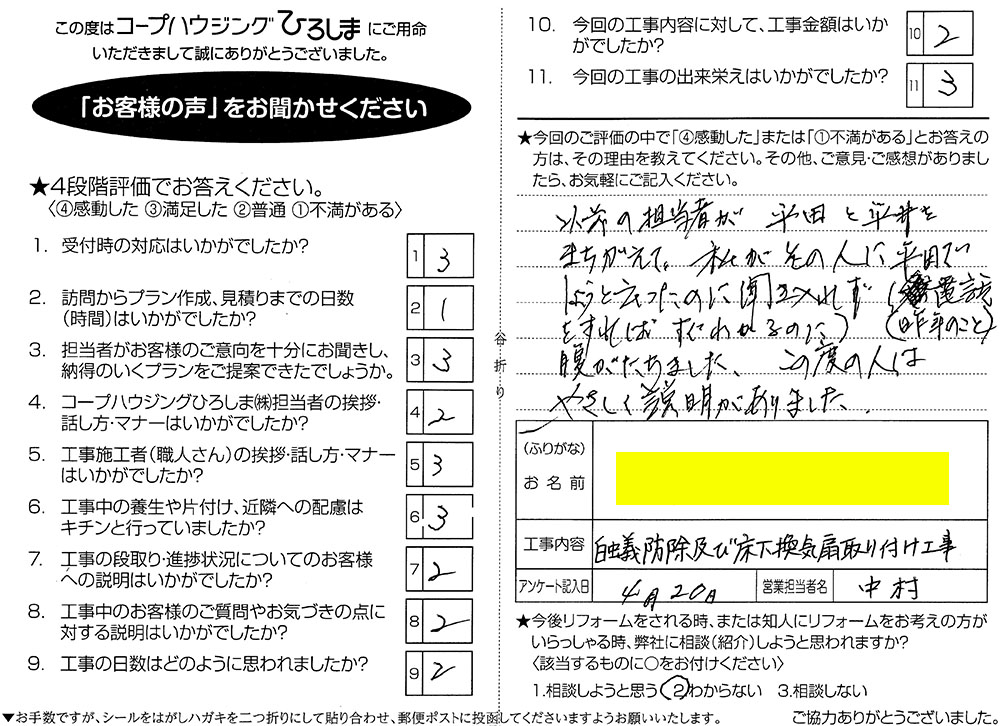 この度はコープハウジングひろしまにご用命
いただきまして誠にありがとうございました。
「お客様の声」をお聞かせください
★4段階評価でお答えください。
〈④感動した ③満足した ②普通 ①不満がある〉
1. 受付時の対応はいかがでしたか?
1 3
2. 訪問からプラン作成、見積りまでの日数
(時間)はいかがでしたか?
2 1
3. 担当者がお客様のご意向を十分にお聞きし、
納得のいくプランをご提案できたでしょうか。
3 3
4. コープハウジングひろしま㈱担当者の挨拶・
話し方・マナーはいかがでしたか?
4 2
5. 工事施工者(職人さん)の挨拶・話し方・マナー
はいかがでしたか?
5 3
6. 工事中の養生や片付け、近隣への配慮は
キチンと行っていましたか?
6 3
7. 工事の段取り・進捗状況についてのお客様
への説明はいかがでしたか?
7 2
8. 工事中のお客様のご質問やお気づきの点に
対する説明はいかがでしたか?
8 2
9. 工事の日数はどのように思われましたか?
9 2
谷折り
10. 今回の工事内容に対して、工事金額はいか
がでしたか?
10 2
11. 今回の工事の出来栄えはいかがでしたか?
11 3
★今回のご評価の中で「④感動した」または「①不満がある」とお答えの
方は、その理由を教えてください。その他、ご意見・ご感想がありまし
たら、お気軽にご記入ください。
以前の担当者が 平田と平井を
まちがえて、私がその人に平田で
しょうと云ったのに聞き入れず(電話
をすればすぐわかるのに)(昨年のこと)
腹がたちました、この度の人は
やさしく説明がありました、
(ふりがな)
お名前
工事内容 白蟻防除及び床下換気扇取り付け工事
アンケート記入日 4月20日 営業担当者名 中村
★今後リフォームをされる時、または知人にリフォームをお考えの方が
いらっしゃる時、弊社に相談(紹介)しようと思われますか?
〈該当するものに○をお付けください〉
1.相談しようと思う ②わからない 3.相談しない
▼お手数ですが、シールをはがしハガキを二つ折りにして貼り合わせ、郵便ポストに投函してくださいますようお願いいたします。
ご協力ありがとうございました。